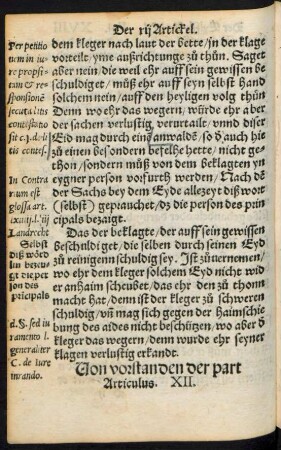 Der xij Artickel.
Per petitio
num in iu
re propsi-
tam & re
sponsionē
secuta litis
contestatio
sit c.j. de li
tis contes.
In Contra
rium est
glossa art.
Landrecht
Selbst
diß wörd
lin bezeu
gt die per
son des
prīcipals
d.§. sed iu
ramento l.
generaliter
C. de iure
iurando.
dem kleger nach laut der bette/ jn der klage
vorteilt/ yme außrichtunge zů thün. Saget
aber nein/ die weil ehr auff sein gewissen be
schuldiget/ můß ehr auff seyn selbst hand
solchem nein/ auff den heyligen volg thůn
Denn wo ehr das wegern/ würde ehr aber
der sachen verlustig/ verurtailt/ vnnd diser
Eid mag durch eins anwaldē/ so ď auch hit
zů einen besondern befelhe hette/ nicht ge-
thon/ sondern můß von dem beklagten yn
eygner person vorfurth werden/ Nach dē
der Sachs bey dem Eyde allezeyt diß wort
(selbst) geprauchet/ dz die person des prin
cipals bezaigt.
Das der beklagte/ der auff sein gewissen
beschuldiget/ die selben durch seinen Eyd
zů reinigen schuldig sey. Ist zů vernemen/
wo ehr dem kleger solchem Eyd nicht wid
er anhaim scheubet/ das ehr den zů thonn
macht hat/ denn ist der kleger zů schweren
schuldig/ vñ mag sich gegen der haimschie
bung des aides nicht beschützen/ wo aber ď
kleger das wegern/ denn wurde ehr seyner
klagen verlustig erkandt.
Von vorstanden der part
Articulus. XII.